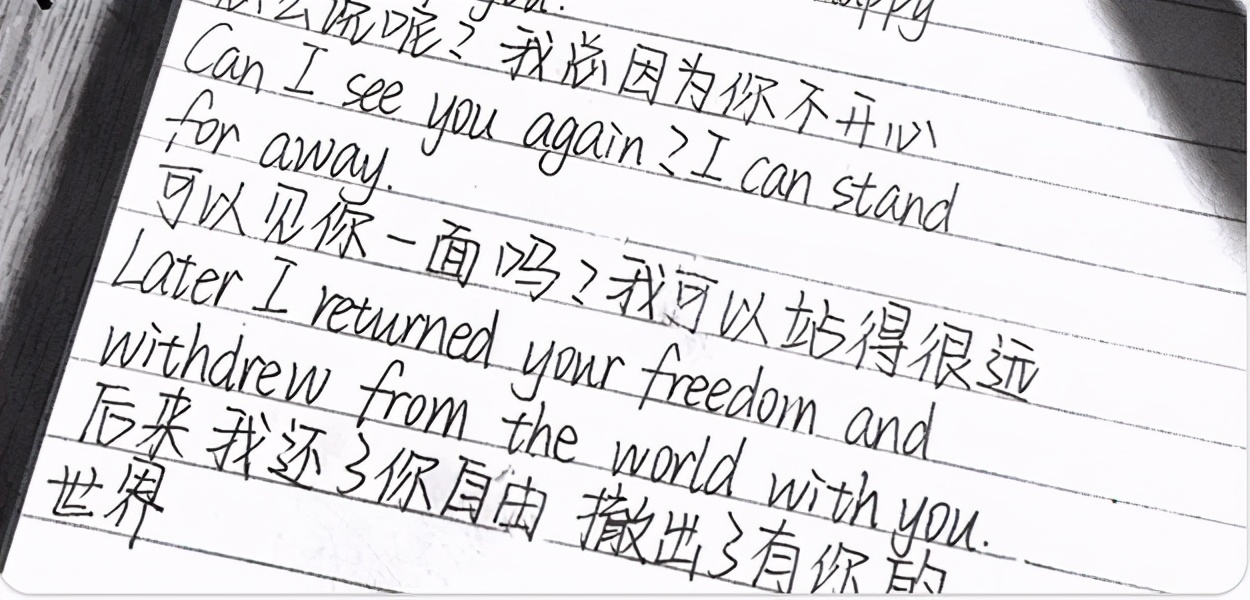 怎么说呢？我总因为你不开心
Can I see you again? I can stand
for away.
可以见你一面吗？我可以站得很远
Later I returned your freedom and
withdrew from the world with you.
后来我还了你自由 撤出了有你的
世界